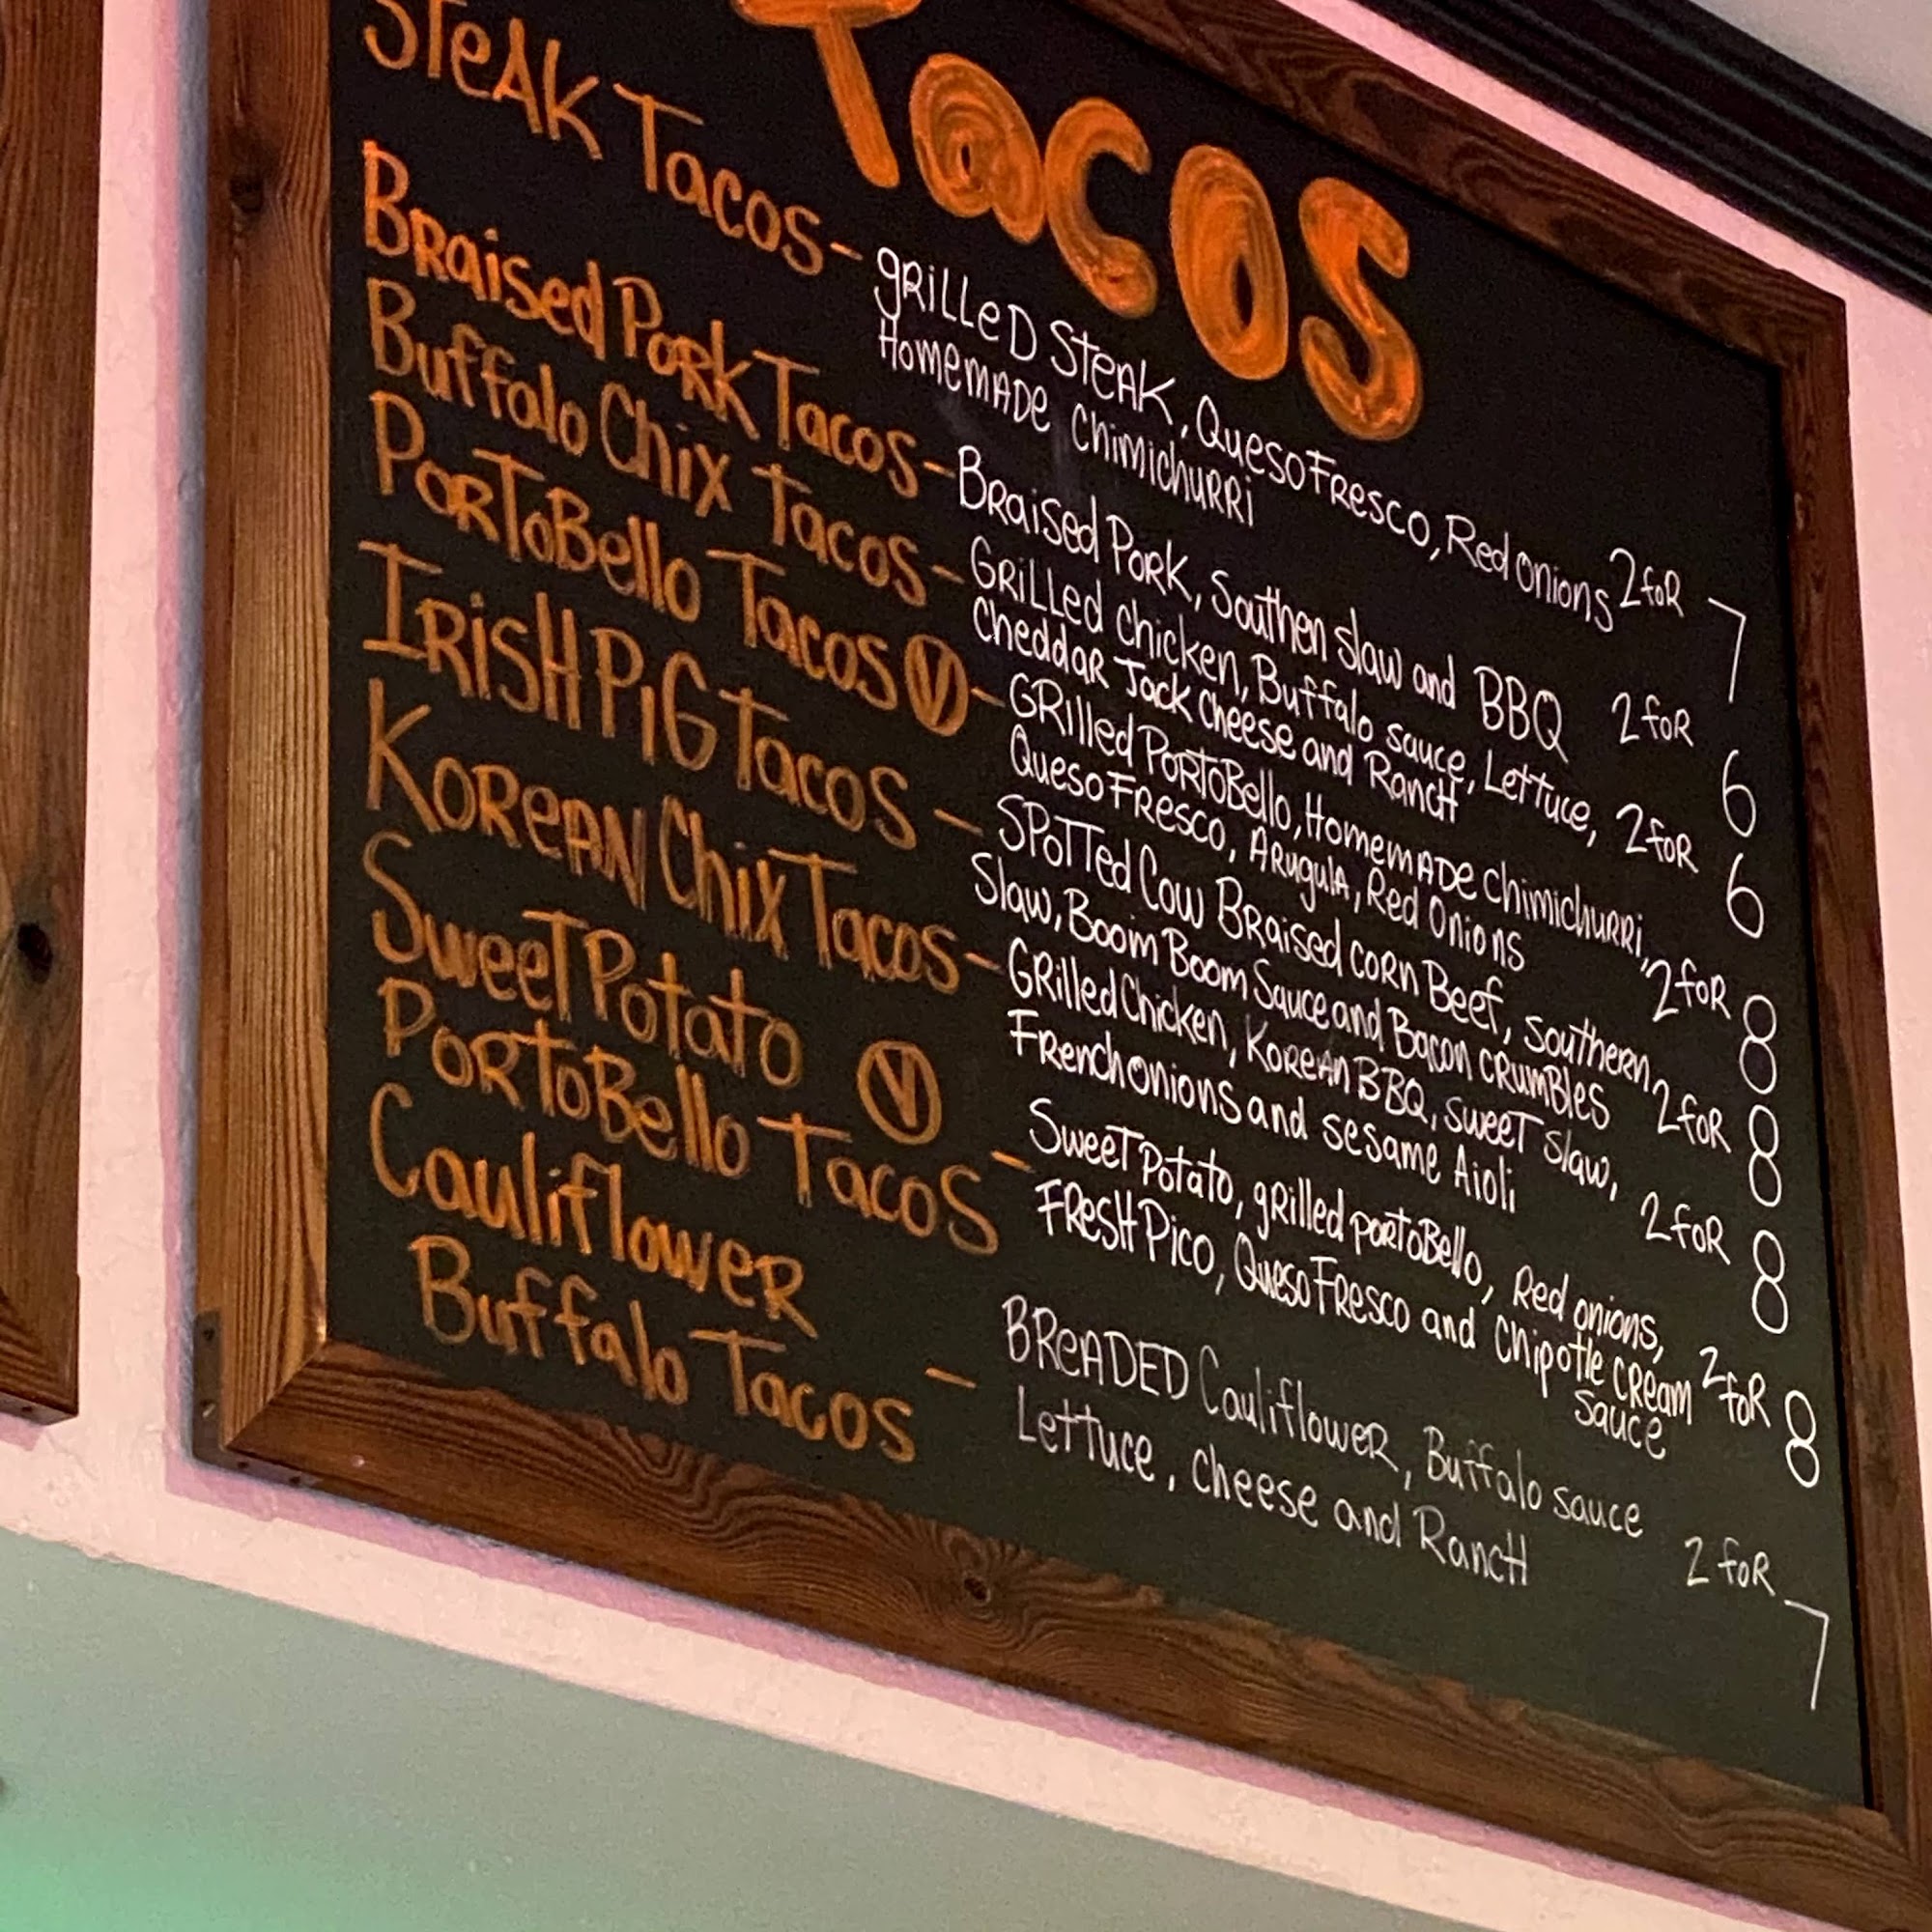 Tacos
Steak Tacos - grilled Steak, Queso Fresco, Red onions 2 for 7
Homemade Chimichurri
Braised Pork Tacos - Braised Pork, Southen slaw and BBQ 2 for 6
Buffalo Chix Tacos - Grilled chicken, Buffalo sauce, Lettuce, 2 for 6
Cheddar Jack Cheese and Ranch
Portobello Tacos V - Grilled Portobello, Homemade Chimichurri, 2 for 8
Queso Fresco, Arugula, Red Onions
Irish Pig Tacos - Spotted Cow Braised corn Beef, southern 2 for 8
Slaw, Boom Boom Sauce and Bacon crumbles
Korean Chix Tacos - Grilled Chicken, Korean BBQ, sweet slaw, 2 for 8
Frenchonions and sesame Aioli
Sweet Potato V
Portobello Tacos - Sweet Potato, grilled portobello, Red onions, 2 for 8
Fresh Pico, Queso Fresco and Chipotle cream
sauce
Cauliflower
Buffalo Tacos - Breaded Cauliflower, Buffalo sauce 2 for 7
Lettuce, cheese and Ranch